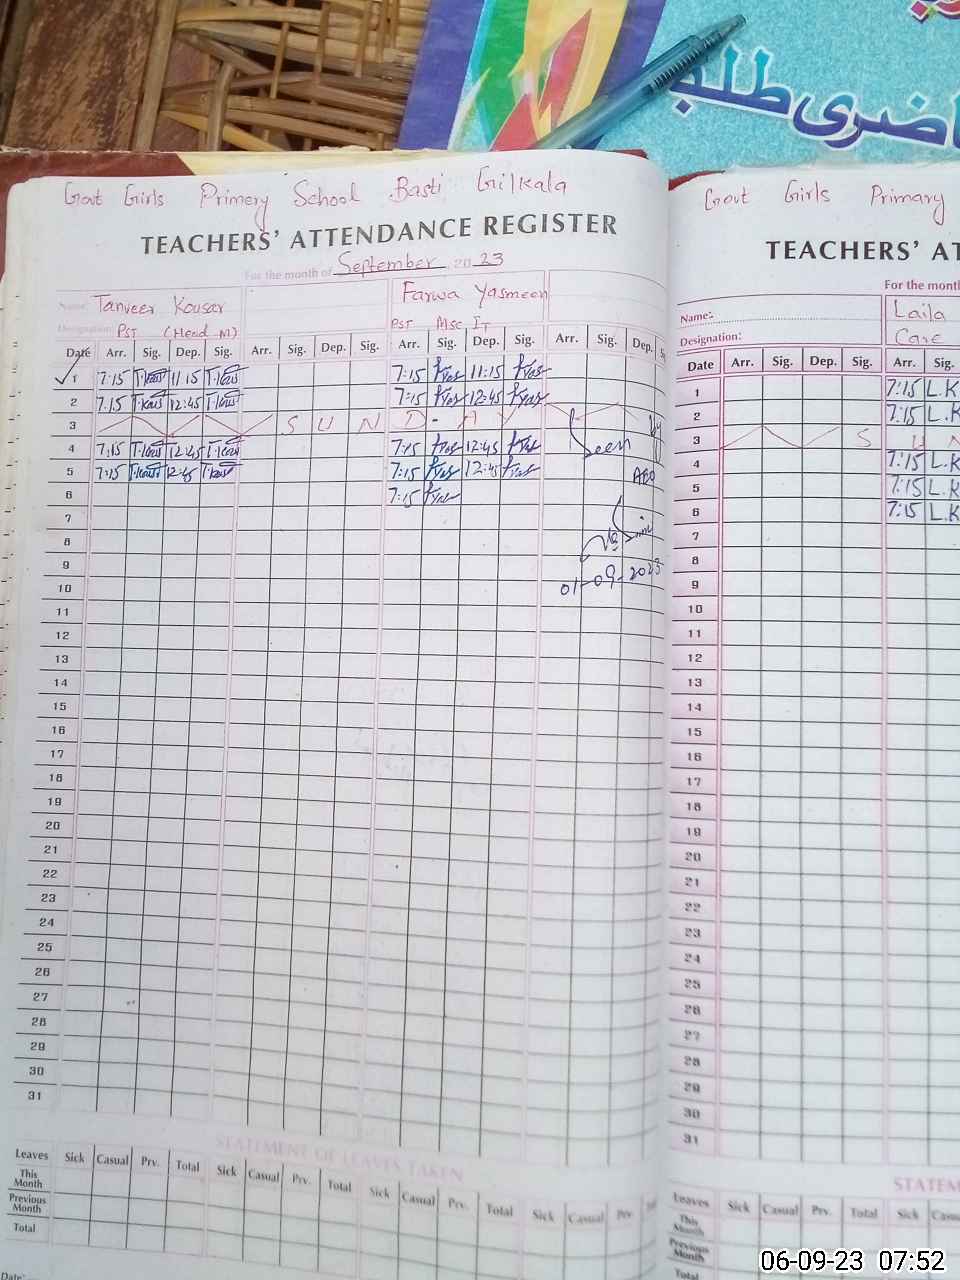 حاضری طلبہ
Govt Girls Primery School Basti Gilkala
TEACHERS' ATTENDANCE REGISTER
For the month of September 2023
Name: Tanveer Kousar Farwa Yasmeen
Designation: PST (Head M) PST Msc IT
Date Arr. Sig. Dep. Sig. Arr. Sig. Dep. Sig. Arr. Sig. Dep. Sig. Arr. Sig. Dep.
1 7:15 T.Kous 11:15 T.Kous 7:15 fYas 11:15 fYas
2 7:15 T.Kous 12:45 T.Kous 7:15 fYas 12:45 fYas
3 S U N D - A Y
4 7:15 T.Kous 12:45 T.Kous 7:15 fYas 12:45 fYas
5 7:15 T.Kous 12:45 T.Kous 7:15 fYas 12:45 fYas
6 7:15 fYas
Seen by
AEO
01-09-2023
7
8
9
10
11
12
13
14
15
16
17
18
19
20
21
22
23
24
25
26
27
28
29
30
31
STATEMENT OF LEAVES TAKEN
Leaves Sick Casual Prv. Total Sick Casual Prv. Total Sick Casual Prv. Total Sick Casual Prv.
This Month
Previous Month
Total
Date:
Govt Girls Primary
TEACHERS' AT
For the month
Name: Laila
Designation: Care
Date Arr. Sig. Dep. Sig. Arr. Sig.
1 7:15 L.K
2 7:15 L.K
3 S U N
4 7:15 L.K
5 7:15 L.K
6 7:15 L.K
7
8
9
10
11
12
13
14
15
16
17
18
19
20
21
22
23
24
25
26
27
28
29
30
31
STATEM
Leaves Sick Casual Prv. Total Sick Casu
This Month
Previous Month
Total
06-09-23 07:52